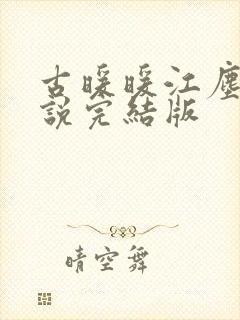 古暖暖江塵
說完結版
晴空舞